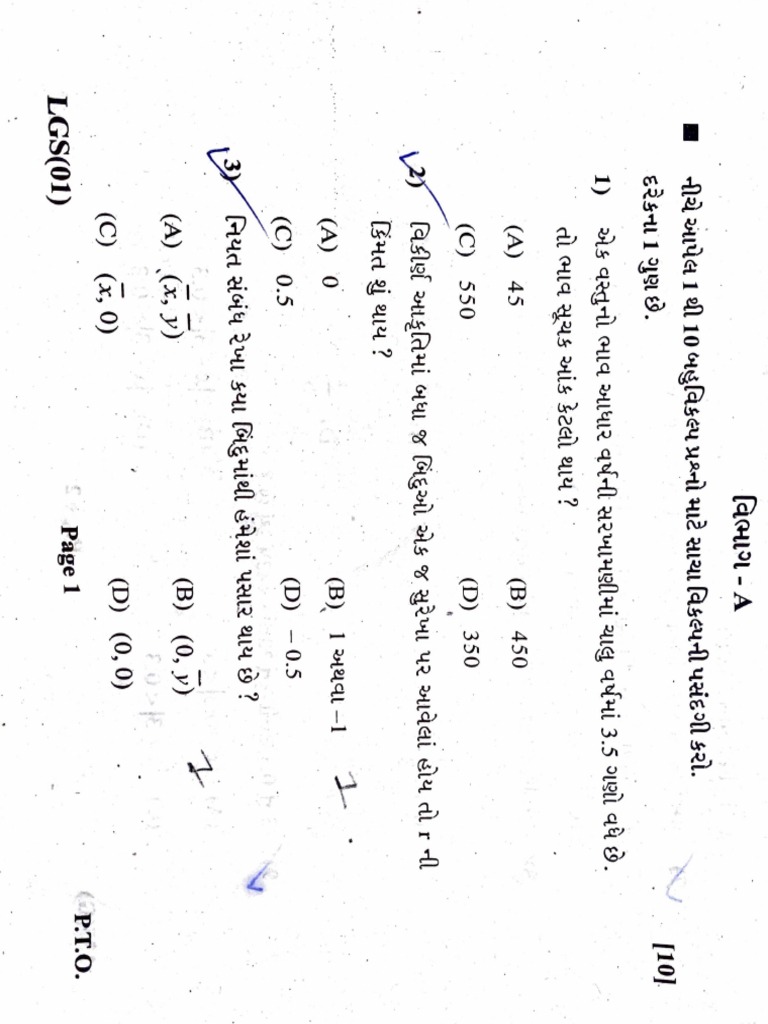 વિભાગ - A
■ નીચે આપેલ 1 થી 10 બહુવિકલ્પ પ્રશ્નો માટે સાચા વિકલ્પની પસંદગી કરો. [10]
દરેકના 1 ગુણ છે.
1) એક વસ્તુનો ભાવ આધાર વર્ષની સરખામણીમાં ચાલુ વર્ષમાં 3.5 ગણો વધે છે.
તો ભાવ સૂચક આંક કેટલો થાય ?
(A) 45 (B) 450
(C) 550 (D) 350
2) વિકીર્ણ આકૃતિમાં બધા જ બિંદુઓ એક જ સુરેખા પર આવેલાં હોય તો r ની
કિંમત શું થાય ?
(A) 0 (B) 1 અથવા –1 1
(C) 0.5 (D) – 0.5
3) નિયત સંબંધ રેખા કયા બિંદુમાંથી હંમેશાં પસાર થાય છે ?
(A) (x̅, y̅) (B) (0, y̅) 1
(C) (x̅, 0) (D) (0, 0)
LGS(01) Page 1 P.T.O.